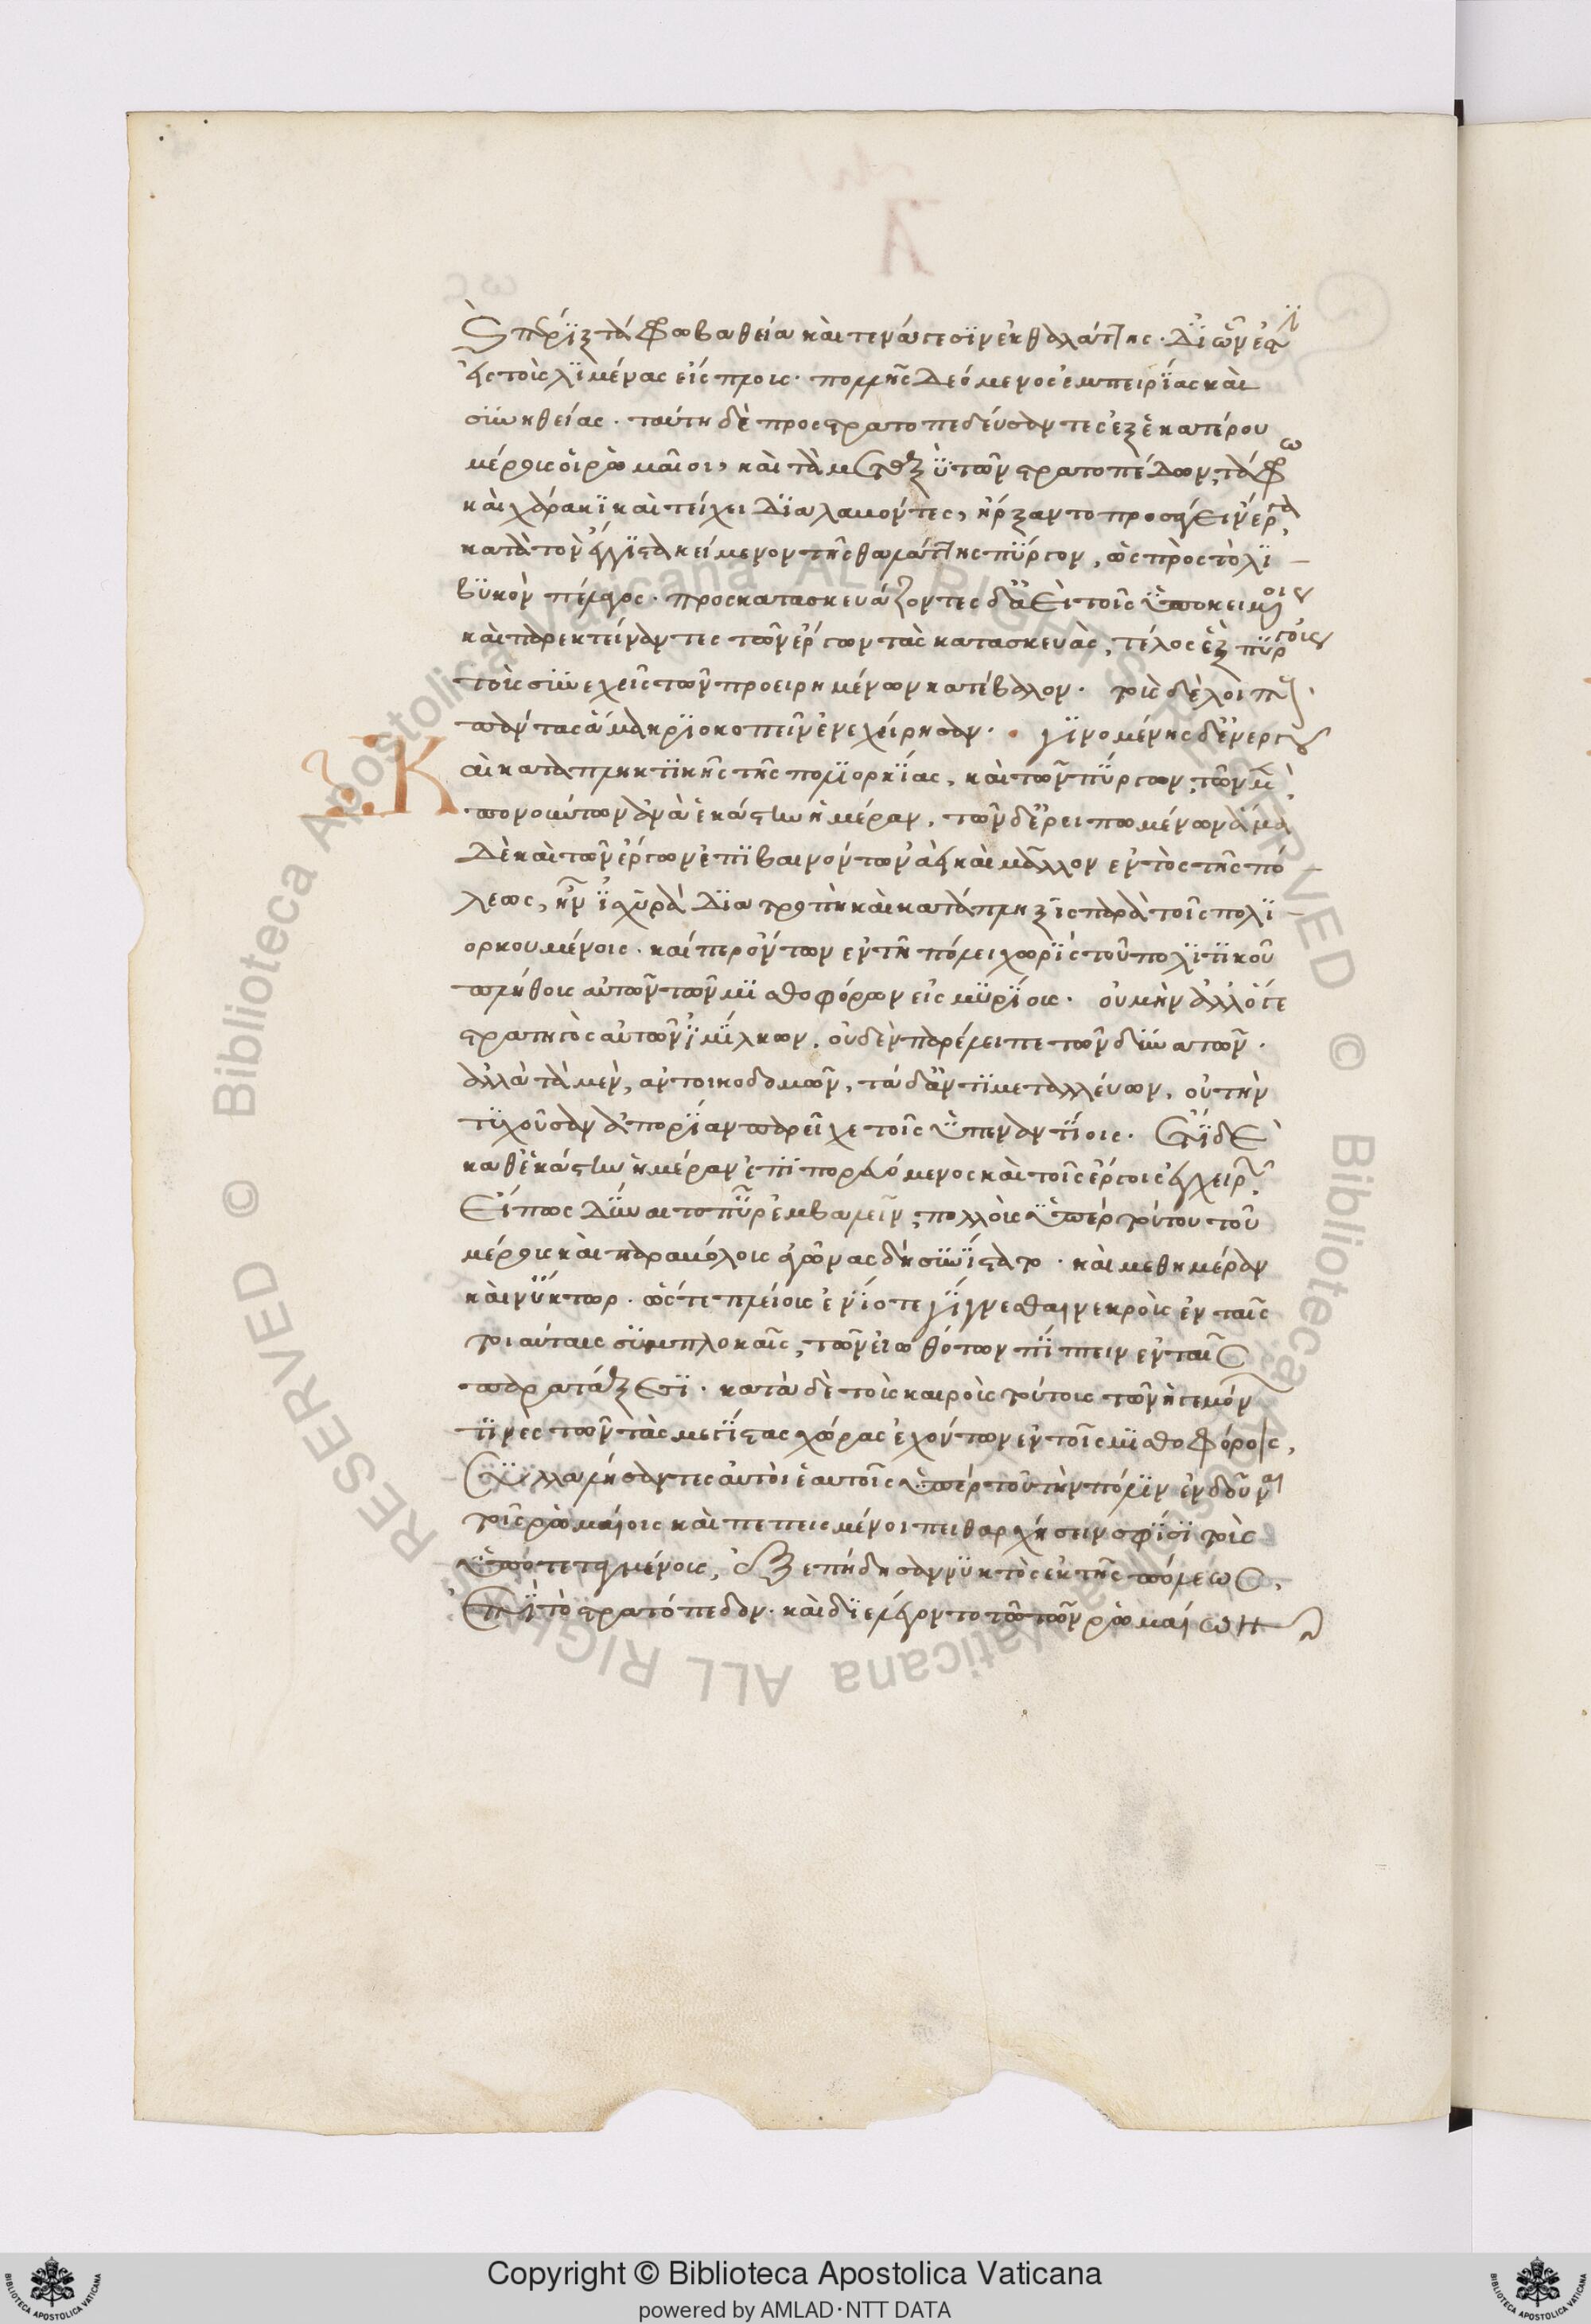 ς πέριξ τάφρω βαθεία καὶ τενάγεσιν ἐκ θαλάττης. δι ὧν ἐστιν
εἰς τοὺς λιμένας εἴσπλους. πολλῆς δεόμενος ἐμπειρίας καὶ
συνηθείας. ταύτη δὲ προσστρατοπεδεύσαντες ἐξ ἑκατέρου
μέρους οἱ ρωμαῖοι, καὶ τὰ μεταξὺ τῶν στρατοπέδων, τάφρω
καὶ χάρακι καὶ τείχει διαλαβόντες, ἤρξαντο προσάγειν ἔργα
κατὰ τὸν ἔγγιστα κείμενον τῆς θαλάττης πύργον, ὡς πρὸς τὸ λι
βυκὸν πέλαγος. προσκατασκευάζοντες δ ἀεὶ τοῖς ὑποκειμένοις
καὶ παρεκτείνοντες τῶν ἔργων τὰς κατασκευὰς, τέλος ἓξ πύργους
τοὺς συνεχεῖς τῶν προειρημένων κατέβαλον. τοὺς δὲ λοιποὺς
πάντας ἅμα κριοκοπεῖν ἐνεχείρησαν. γινομένης δ ἐνεργοῦ
Κ αὶ καταπληκτικῆς τῆς πολιορκίας, καὶ τῶν πύργων, τῶν μὲν
πονούντων ἀνὰ ἑκάστην ἡμέραν, τῶν δ ἐρειπωμένων ἅμα
δὲ καὶ τῶν ἔργων ἐπιβαινόντων ἀεὶ καὶ μᾶλλον ἐντὸς τῆς πό
λεως, ἦν ἰσχυρὰ διατροπὴ καὶ κατάπληξις παρὰ τοῖς πολι
ορκουμένοις. καίπερ ὄντων ἐν τῆ πόλει χωρὶς τοῦ πολιτικοῦ
πλήθους αὐτῶν τῶν μισθοφόρων εἰς μυρίους. οὐ μὴν ἀλλ ὅ γε
στρατηγὸς αὐτῶν ἰμίλκων, οὐδὲν παρέλειπε τῶν δυνατῶν.
ἀλλὰ τὰ μὲν, ἀντοικοδομῶν, τὰ δ ἀντιμεταλλεύων, οὐ τὴν
τυχοῦσαν ἀπορίαν παρεῖχε τοῖς ὑπεναντίοις. ἔτι δὲ
καθ ἑκάστην ἡμέραν ἐπιπορευόμενος καὶ τοῖς ἔργοις ἐγχειρῶν
εἴπως δύναιτο πῦρ ἐμβαλεῖν, πολλοὺς ὑπὲρ τούτου τοῦ
μέρους καὶ παραβόλους ἀγῶνας δὴ συνίστατο. καὶ μεθ ἡμέραν
καὶ νύκτωρ. ὥστε πλείους ἐνίοτε γίγνεσθαι νεκροὺς ἐν ταῖς
τοιαύταις συμπλοκαῖς, τῶν εἰωθότων πίπτειν ἐν ταῖς
παρατάξεσι. κατὰ δὲ τοὺς καιροὺς τούτους τῶν ἡγεμόνων
τινὲς τῶν τὰς μεγίστας χώρας ἐχόντων ἐν τοῖς μισθοφόροις,
συλλαλήσαντες αὐτοὶ ἑαυτοῖς ὑπὲρ τοῦ τὴν πόλιν ἐνδοῦναι
τοῖς ρωμαίοις καὶ πεπεισμένοι πειθαρχήσειν σφίσι τοὺς
ὑποτεταγμένους, ἐξεπήδησαν νυκτὸς ἐκ τῆς πόλεως,
ἐπὶ τὸ στρατόπεδον. καὶ διελέγοντο τῶ τῶν ρωμαίων